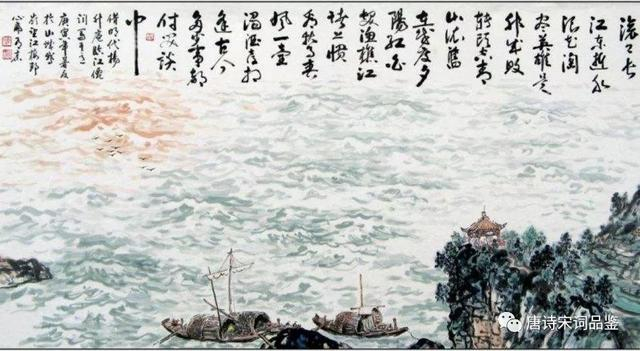 滚滚长
江东逝水
浪花淘
尽英雄是
非成败
转头空青
山依旧
在几度夕
阳红白
发渔樵江
渚上惯
看秋月春
风一壶
浊酒喜相
逢古今
多少事都
付笑谈
中
借明代楊
升庵臨江僊
庚寅年
於山城
唐诗宋词品鉴